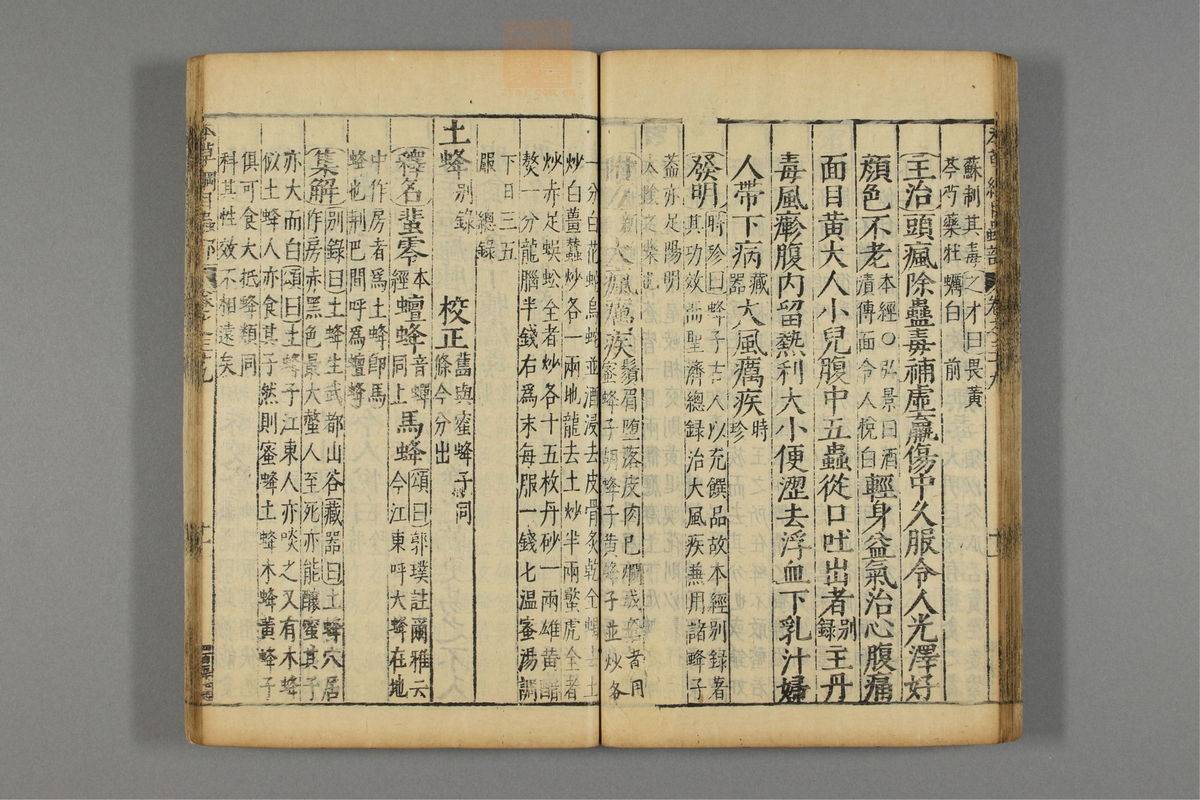 蘇制其毒之才曰畏黃
芩芍藥牡蠣白前
主治頭瘋除蠱毒補虛羸傷中久服令人光澤好
顏色不老本經○弘景曰酒漬傅面令人悅白輕身益氣治心腹痛
面目黃大人小兒腹中五蟲從口吐出者別錄主丹
毒風瘮腹内留熱利大小便澀去浮血下乳汁婦
人帶下病藏器大風癘疾時珍
發明時珍曰蜂子古人以充饌品故本經別錄著
其功效而聖濟總録治大風疾兼用諸蜂子
蓋亦足陽明
大風癘疾鬚眉墮落皮肉已爛成瘡者用
蜜蜂子胡蜂子黃蜂子並炒各
一分白花蛇烏蛇並酒浸去皮骨炙乾全蝎去土
炒白薑蠶炒各一兩地龍去土炒半兩蠍虎全者
炒赤足蜈蚣全者炒各十五枚丹砂一兩雄黃醋
熬一分龍腦半錢右爲末每服一錢七温蜜湯調
下日三五
服總錄
土蜂別錄校正舊與蜜蜂子同條今分出
釋名蜚零本經蟺蜂音蟬同上馬蜂頌曰郭璞註爾雅云今江東呼大蜂在地
中作房者爲土蜂即馬
蜂也荆巴間呼爲蟺蜂
集解別錄曰土蜂生武都山谷藏器曰土蜂穴居
作房赤黑色最大螫人至死亦能釀蜜其子
亦大而白頌曰土蜂子江東人亦啖之又有木蜂
似土蜂人亦食其子然則蜜蜂土蜂木蜂黃蜂子
俱可食大抵蜂類同
科其性效不相遠矣